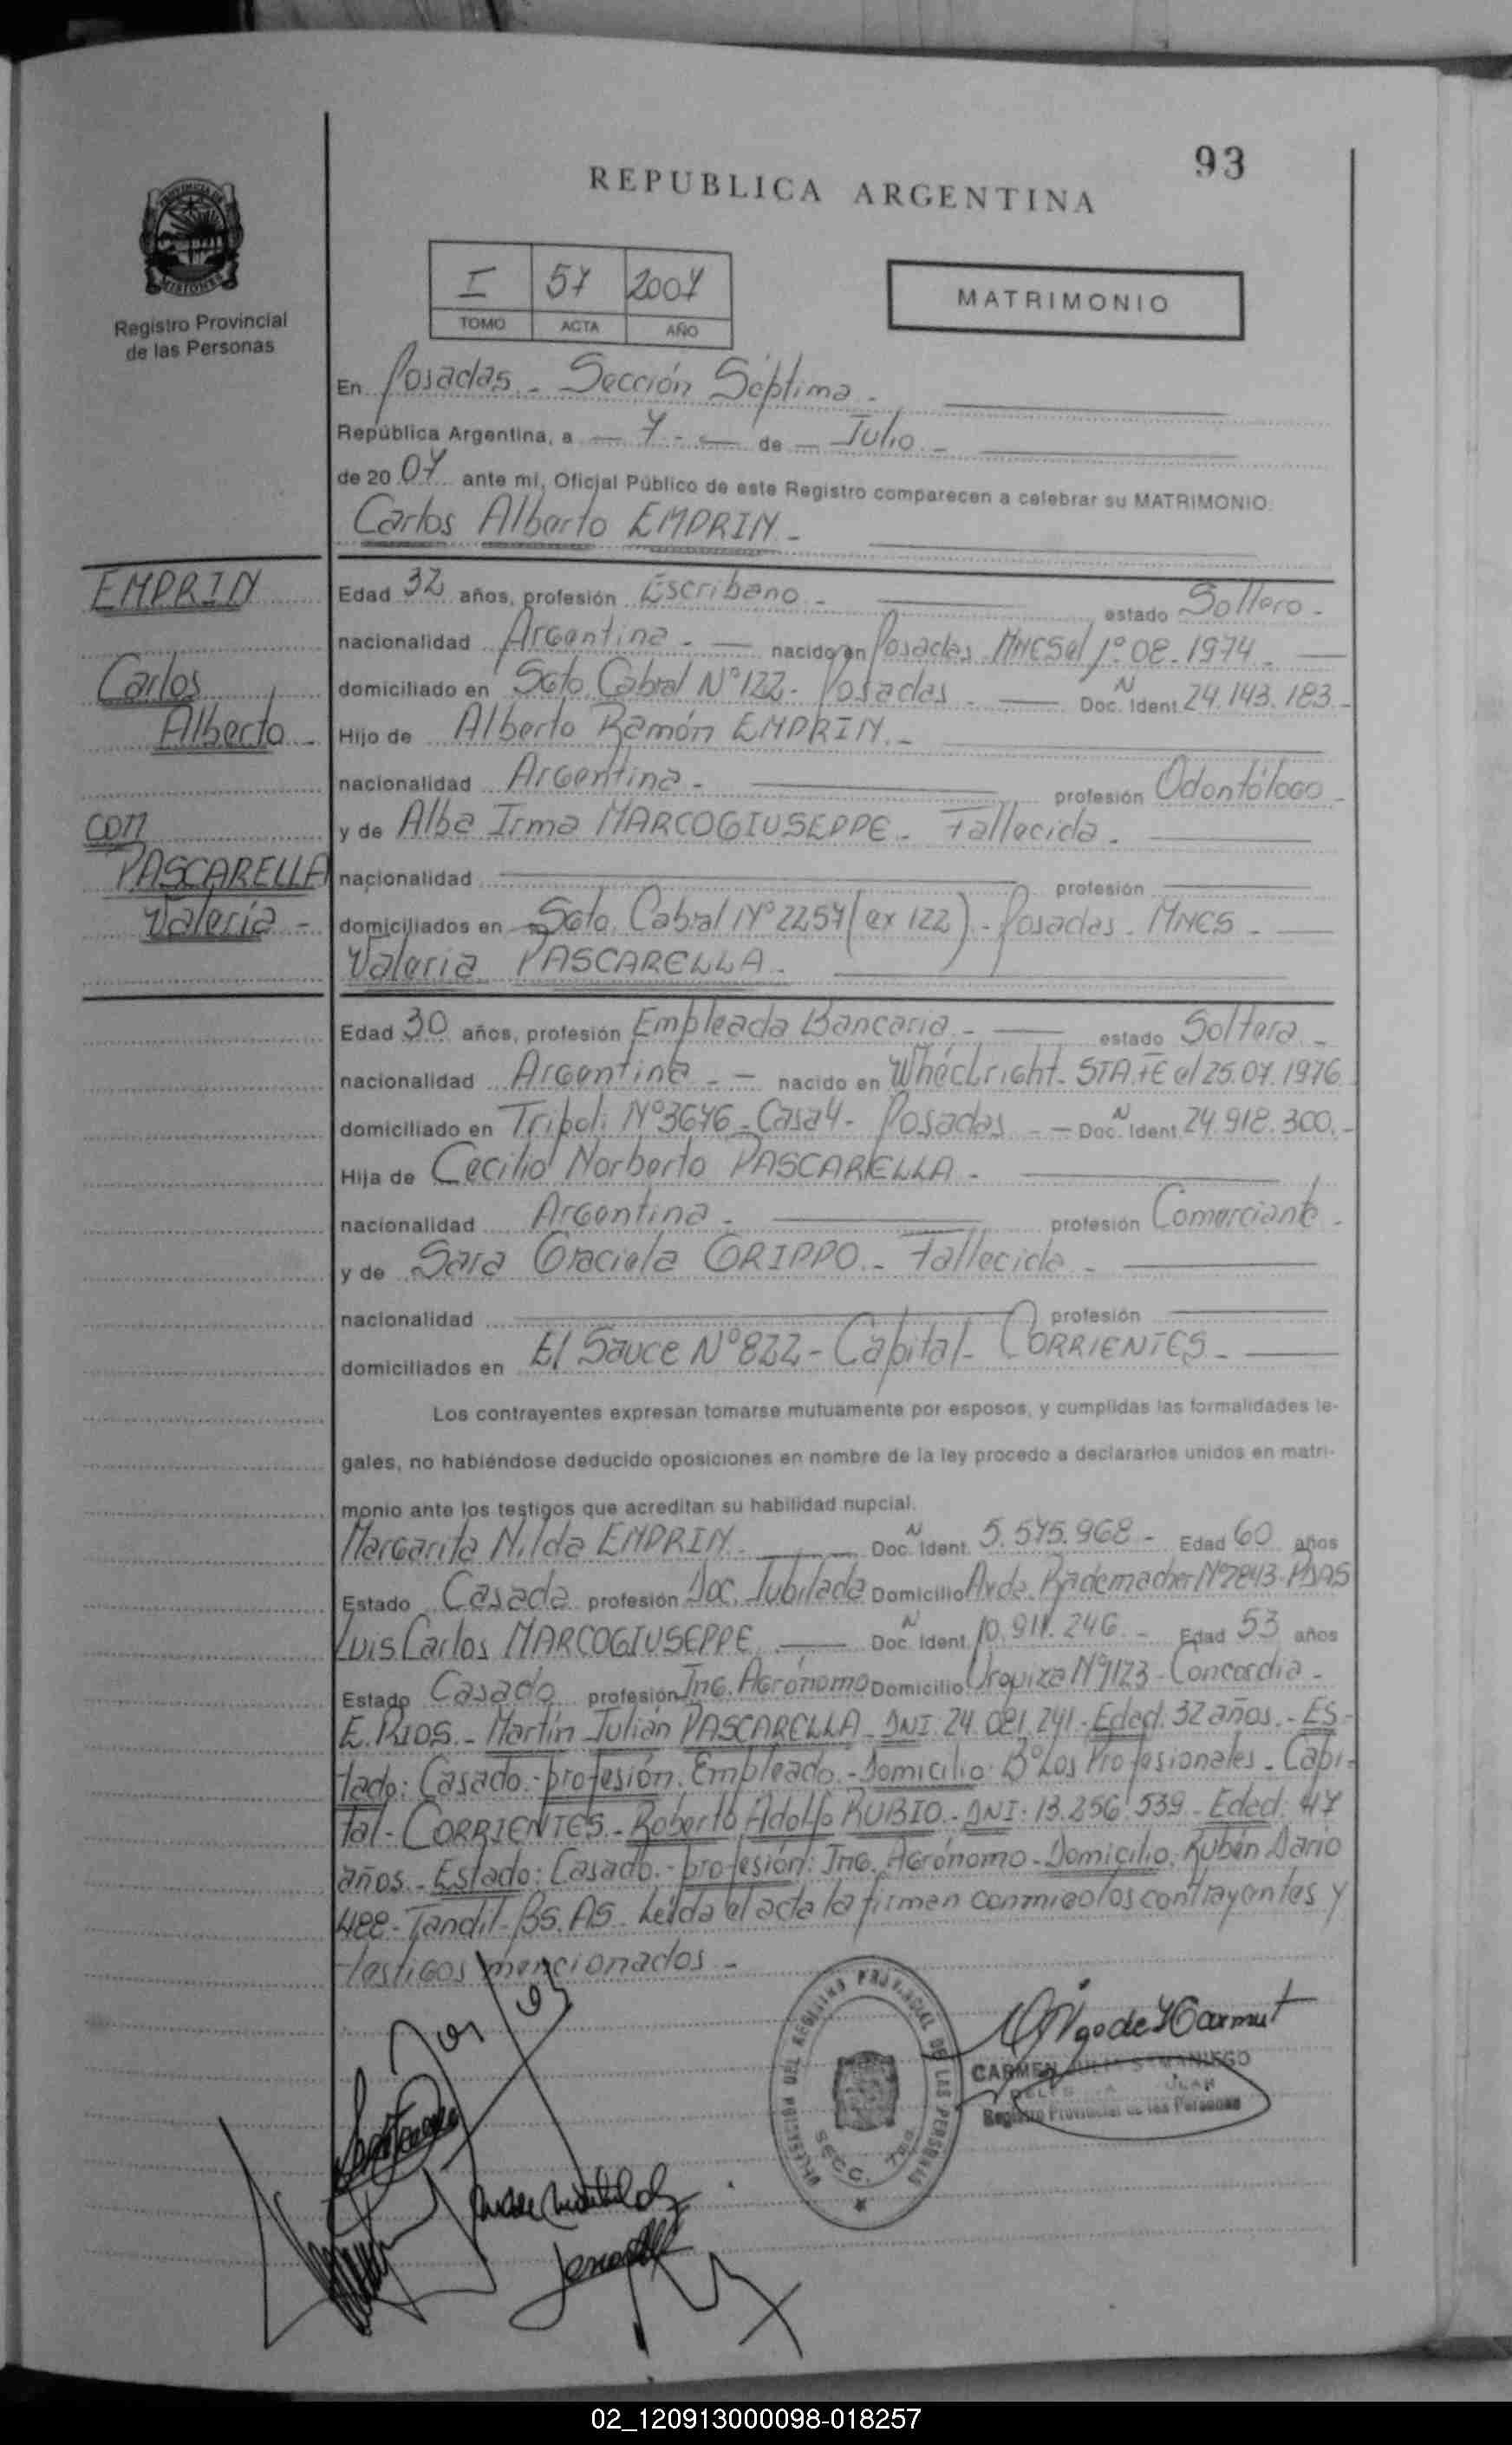 93
REPUBLICA ARGENTINA
PROVINCIA DE
MISIONES
Registro Provincial
de las Personas
I 57 2007
TOMO ACTA AÑO
MATRIMONIO
En Posadas - Sección Séptima -
República Argentina, a - 7 - de - Julio -
de 20 07 ante mí, Oficial Público de este Registro comparecen a celebrar su MATRIMONIO
Carlos Alberto EMPRIN -
EMPRIN
Carlos
Alberto -
con
PASCARELLA
Valeria -
Edad 32 años, profesión Escribano - estado Soltero -
nacionalidad Argentina - nacido en Posadas MNES el 1º 08 - 1974 -
domiciliado en Sgto. Cabral Nº 122 - Posadas - Doc. N Ident. 24.143.183 -
Hijo de Alberto Ramón EMPRIN -
nacionalidad Argentina - profesión Odontólogo -
y de Alba Irma MARCOGIUSEPPE - Fallecida -
nacionalidad profesión
domiciliados en Sgto. Cabral Nº 2257 (ex 122) - Posadas - MNES -
Valeria PASCARELLA -
Edad 30 años, profesión Empleada Bancaria - estado Soltera -
nacionalidad Argentina - - nacido en Whéelright - STA. FE el 25.07.1976
domiciliado en Tripoli Nº 3676 - Casa 4 - Posadas - - Doc. N Ident. 24.918.300. -
Hija de Cecilio Norberto PASCARELLA -
nacionalidad Argentina - profesión Comerciante -
y de Sara Graciela GRIPPO - Fallecida -
nacionalidad profesión
domiciliados en El Sauce Nº 822 - Capital - CORRIENTES -
Los contrayentes expresan tomarse mutuamente por esposos, y cumplidas las formalidades le-
gales, no habiéndose deducido oposiciones en nombre de la ley procedo a declararlos unidos en matri-
monio ante los testigos que acreditan su habilidad nupcial.
Margarita Nilda EMPRIN - Doc. N Ident. 5.575.968 - Edad 60 años
Estado Casada profesión Doc. Jubilada Domicilio Avda. Rademacher Nº 2843 - PDAS
Luis Carlos MARCOGIUSEPPE Doc. N Ident. 10.911.246 - Edad 53 años
Estado Casado profesión Ing. Agrónomo Domicilio Urquiza Nº 1123 - Concordia -
E. RIOS - Martín Julián PASCARELLA - DNI: 24.021.241 - Edad: 32 años. - ES-
tado: Casado. - profesión: Empleado - Domicilio: Bº Los Profesionales - Capi-
tal - CORRIENTES - Roberto Adolfo RUBIO - DNI: 13.256.539 - Edad: 47
años. - Estado: Casado. - profesión: Ing. Agrónomo - Domicilio: Rubén Dario
488 - Tandil - BS. AS. Leída el acta la firman conmigo los contrayentes y
testigos mencionados -
REGISTRO PROVINCIAL DE LAS PERSONAS
SECC. 7ma.
CARMEN JULIA SAMANIEGO
Registro Provincial de las Personas
02_120913000098-018257